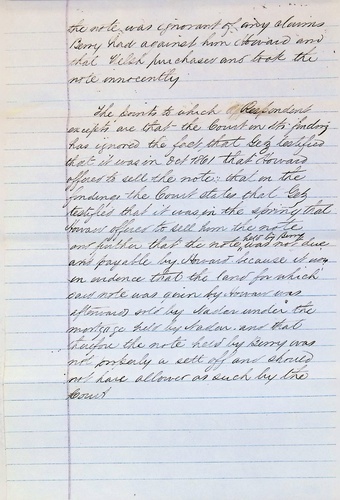 the note, was ignorant of any claims
Berry had against him Howard and
that Welsh purchased and took the
note innocently
The points to which Respondent
excepts are that the Court in its finding
has ignored the fact that Getz testified
that it was in Oct 1861 that Howard
offered to sell the note; that in the
findings the Court states that Getz
testified that it was in the spring that
Howard offered to sell him the note
and further that the note held by Berry was not due
and payable by Howard because it was
in evidence that the land for which
said note was given by Howard was
afterwards sold by Nader under the
mortgage held by Nader and that
therefore the note held by Berry was
not properly a sett off and should
not have allowed as such by the
Court